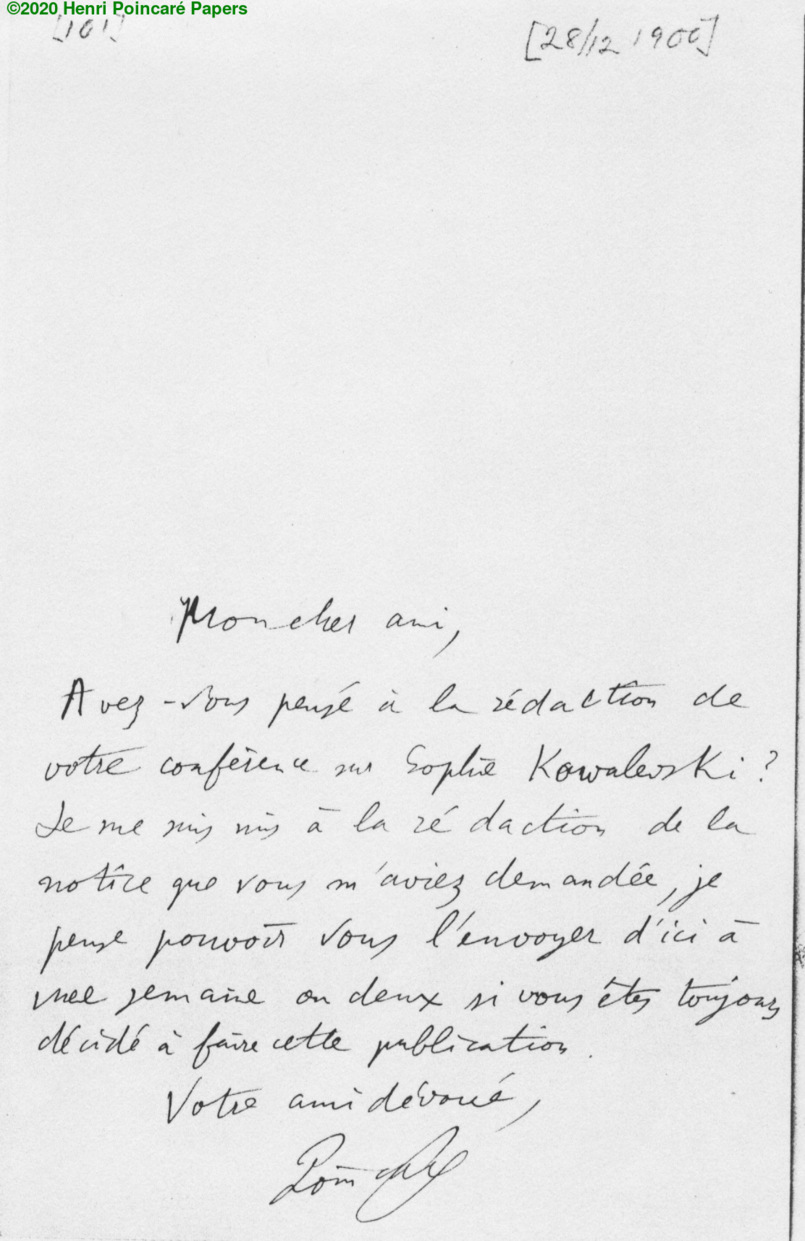 ©2020 Henri Poincaré Papers
[101]
[28/12 1900]
Mon cher ami,
Avez-vous pensé à la rédaction de
votre conférence sur Sophie Kowalevski ?
Je me suis mis à la rédaction de la
notice que vous m'aviez demandée, je
pense pouvoir vous l'envoyer d'ici à
une semaine ou deux si vous êtes toujours
décidé à faire cette publication.
Votre ami dévoué,
Poincaré